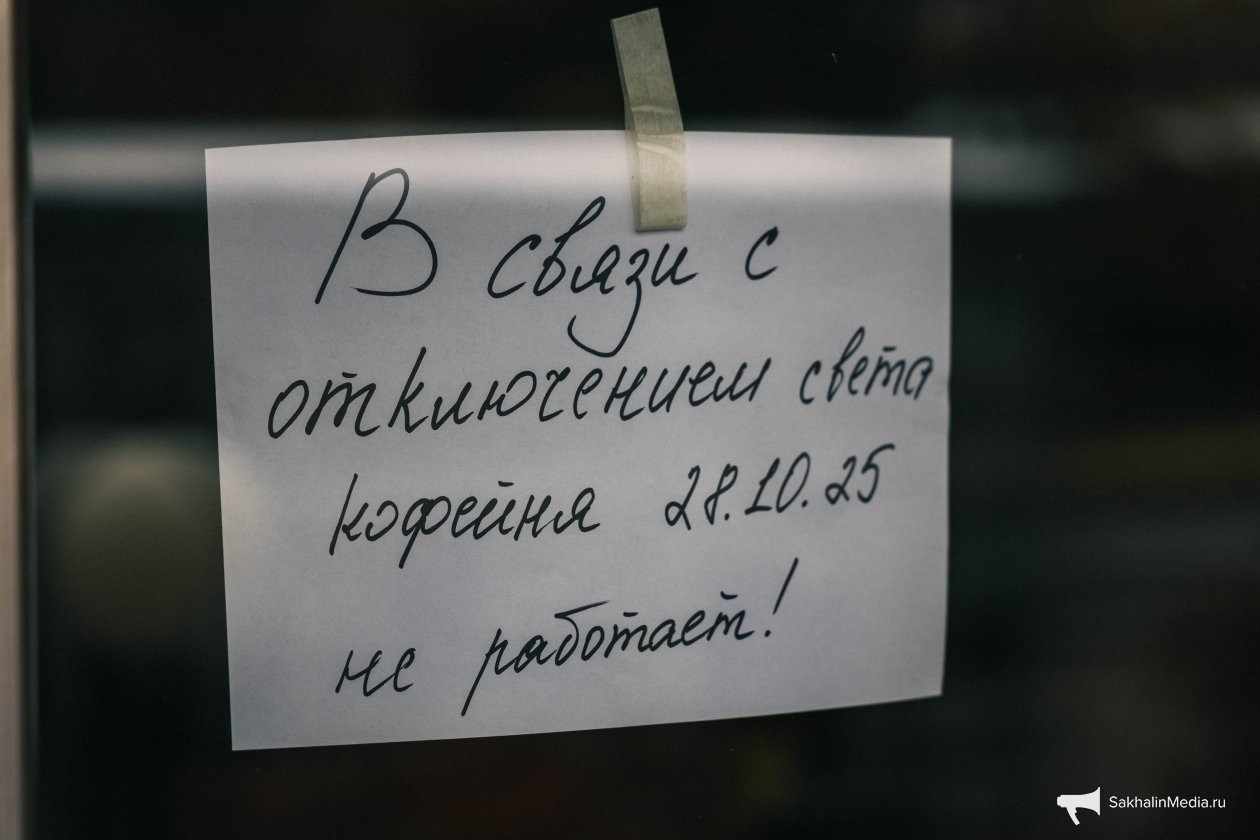 В связи с
отключением света
кофейня 28.10.25
не работает!
SakhalinMedia.ru